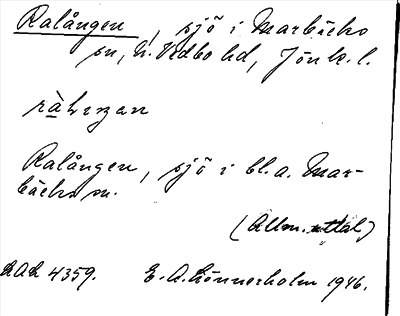 Ralången, sjö i Marbäcks
sn, N. Vedbo hd, Jönk. l.
Ralången, sjö i bl.a. Mar-
bäcks sn.
(Allm. uttal)
4359. E. A. Lönnerholm 1946.